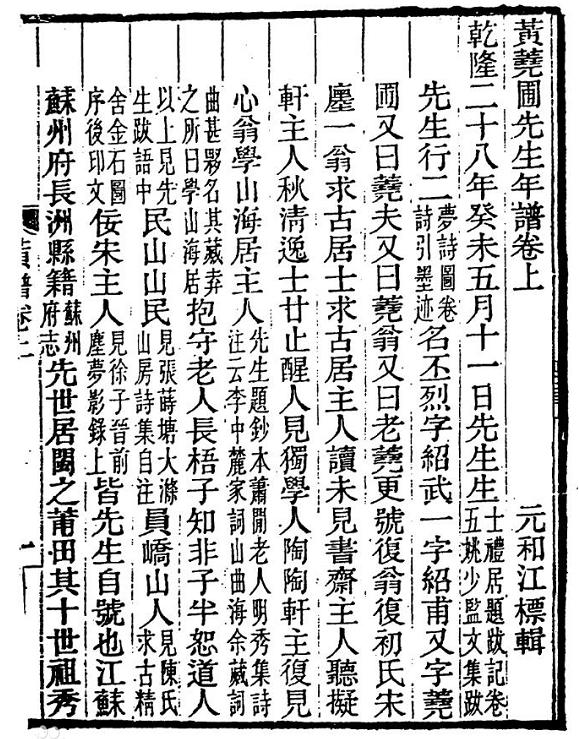 黃蕘圃先生年譜卷上　元和江標輯
乾隆二十八年癸未五月十一日先生生士禮居題跋記卷五姚少監文集跋
先生行二夢詩圖卷詩引墨迹名丕烈字紹武一字紹甫又字蕘
圃又曰蕘夫又曰蕘翁又曰老蕘更號復翁復初氏宋
廛一翁求古居士求古居主人讀未見書齋主人聽擬
軒主人秋清逸士廿止醒人見獨學人陶陶軒主復見
心翁學山海居主人先生題鈔本蕭閒老人明秀集詩注云李中麓家詞山曲海余藏詞
曲甚夥名其藏弆之所曰學山海居抱守老人長梧子知非子半恕道人
以上見先生跋語中民山山民見張蒔塘大滌山房詩集自注員嶠山人見陳氏求古精
舍金石圖序後印文佞宋主人見徐子晉前塵夢影錄上皆先生自號也江蘇
蘇州府長洲縣籍蘇州府志先世居閩之莆田其十世祖秀